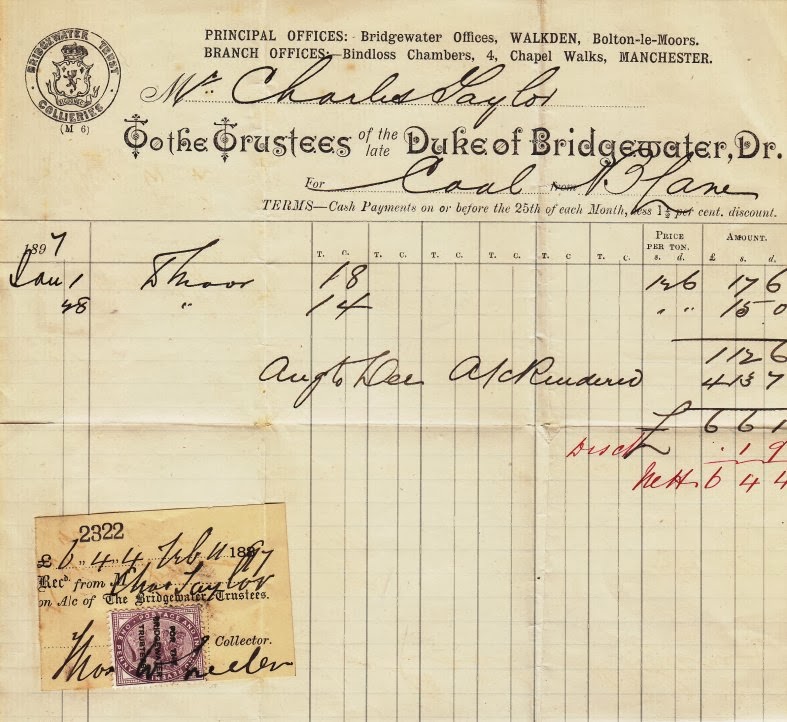 PRINCIPAL OFFICES: Bridgewater Offices, WALKDEN, Bolton-le-Moors.
BRANCH OFFICES:—Bindloss Chambers, 4, Chapel Walks, MANCHESTER.
BRIDGEWATER TRUST
COLLIERIES
(M 6)
Mr. Charles Taylor
To the Trustees of the late Duke of Bridgewater, Dr.
For Coal from N Lane
TERMS—Cash Payments on or before the 25th of each Month, less 1½ per cent. discount.
PRICE PER TON. AMOUNT.
1897 T. C. T. C. T. C. T. C. T. C T. C. s. d. £ s. d.
Jan 1 18 12 6 17 6
28 " 14 " " 15 0
1 12 6
Aug to Dec A/c Rendered 4 13 7
£ 6 6 1
Disct . 1 9
Nett 6 4 4
2322
£ 6 " 4 " 4 Feb 11 1897
Recd. from Mr Chas Taylor
on A/c of The Bridgewater Trustees.
POSTAGE AND
FOR THE
BRIDGEWATER
TRUSTEES
Collector.